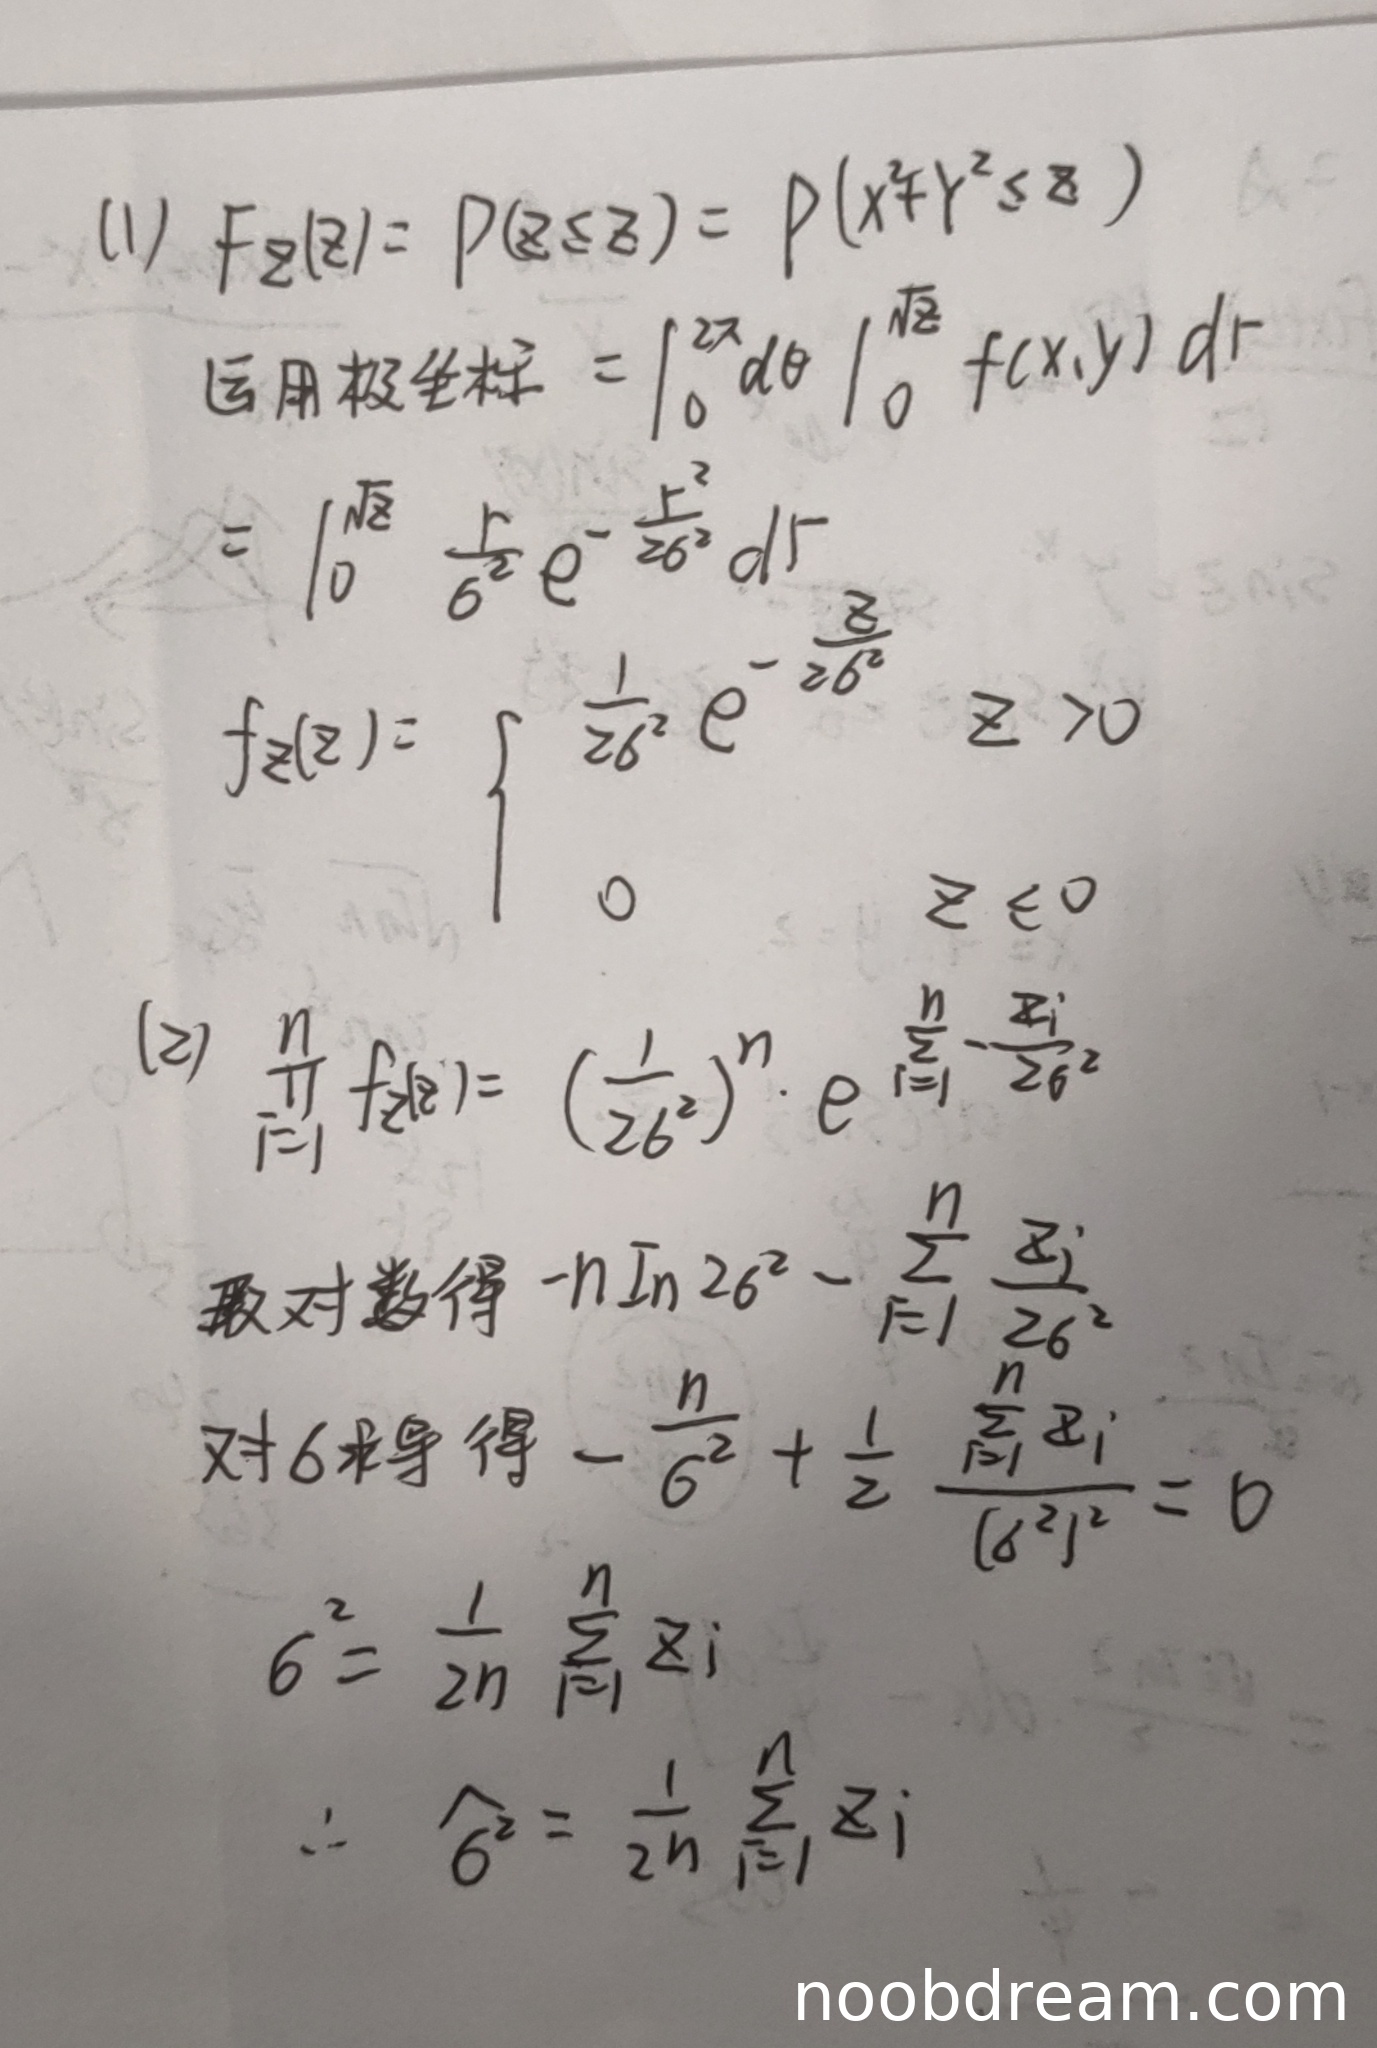 (1) F_Z(z) = P(Z≤z) = P(X²+Y²≤z)
运用极坐标 = ∫₀^{2π} dθ ∫₀^{√z} f(x,y) dr
= ∫₀^{√z} r/σ² e^{-r²/2σ²} dr
f_Z(z) = { 1/2σ² e^{-z/2σ²} z>0
0 z≤0
(2) ∏_{i=1}^{n} f_Z(z) = (1/2σ²)^n · e^{∑_{i=1}^{n} -zi/2σ²}
取对数得 -n ln 2σ² - ∑_{i=1}^{n} zi/2σ²
对σ求导得 - n/σ² + 1/2 ∑_{i=1}^{n} zi/(σ²)² = 0
σ² = 1/2n ∑_{i=1}^{n} zi
∴ σ̂² = 1/2n ∑_{i=1}^{n} zi
noobdream.com